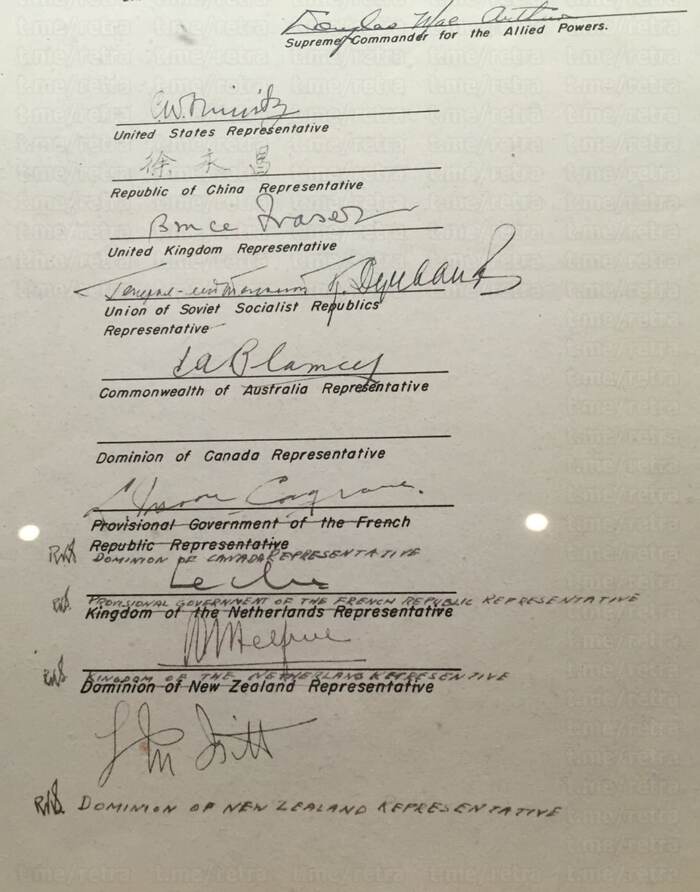 Douglas MacArthur
Supreme Commander for the Allied Powers.
C.W. Nimitz
United States Representative
徐永昌
Republic of China Representative
Bruce Fraser
United Kingdom Representative
Union of Soviet Socialist Republics
Representative
Blamey
Commonwealth of Australia Representative
Dominion of Canada Representative
Cosgrave.
Provisional Government of the French
Republic Representative
DOMINION OF CANADA REPRESENTATIVE
Leclerc
PROVISIONAL GOVERNMENT OF THE FRENCH REPUBLIC REPRESENTATIVE
Kingdom of the Netherlands Representative
Helfrich
KINGDOM OF THE NETHERLAND REPRESENTATIVE
Dominion of New Zealand Representative
Isitt
DOMINION OF NEW ZEALAND REPRESENTATIVE
t.me/retra